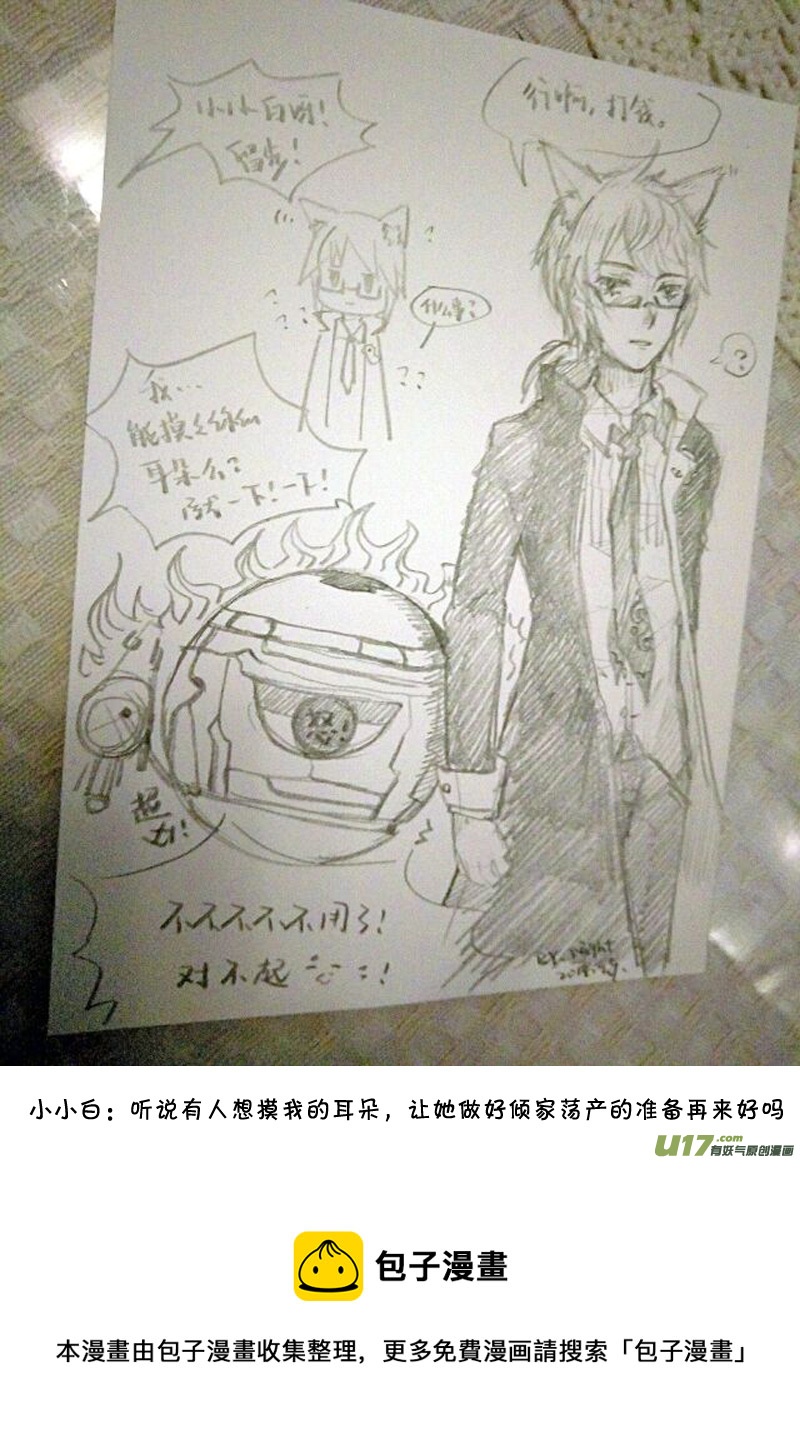 小小白呀!
留步!
行啊，打钱。
什么事?
?
我…
能摸之你的
耳朵么?
就一下!一下!
怒!
超
凶!
不不不不不用了!
对不起
小小白：听说有人想摸我的耳朵，让她做好倾家荡产的准备再来好吗
U17.com
有妖气原创漫画
包子漫畫
本漫畫由包子漫畫收集整理，更多免費漫画請搜索「包子漫畫」